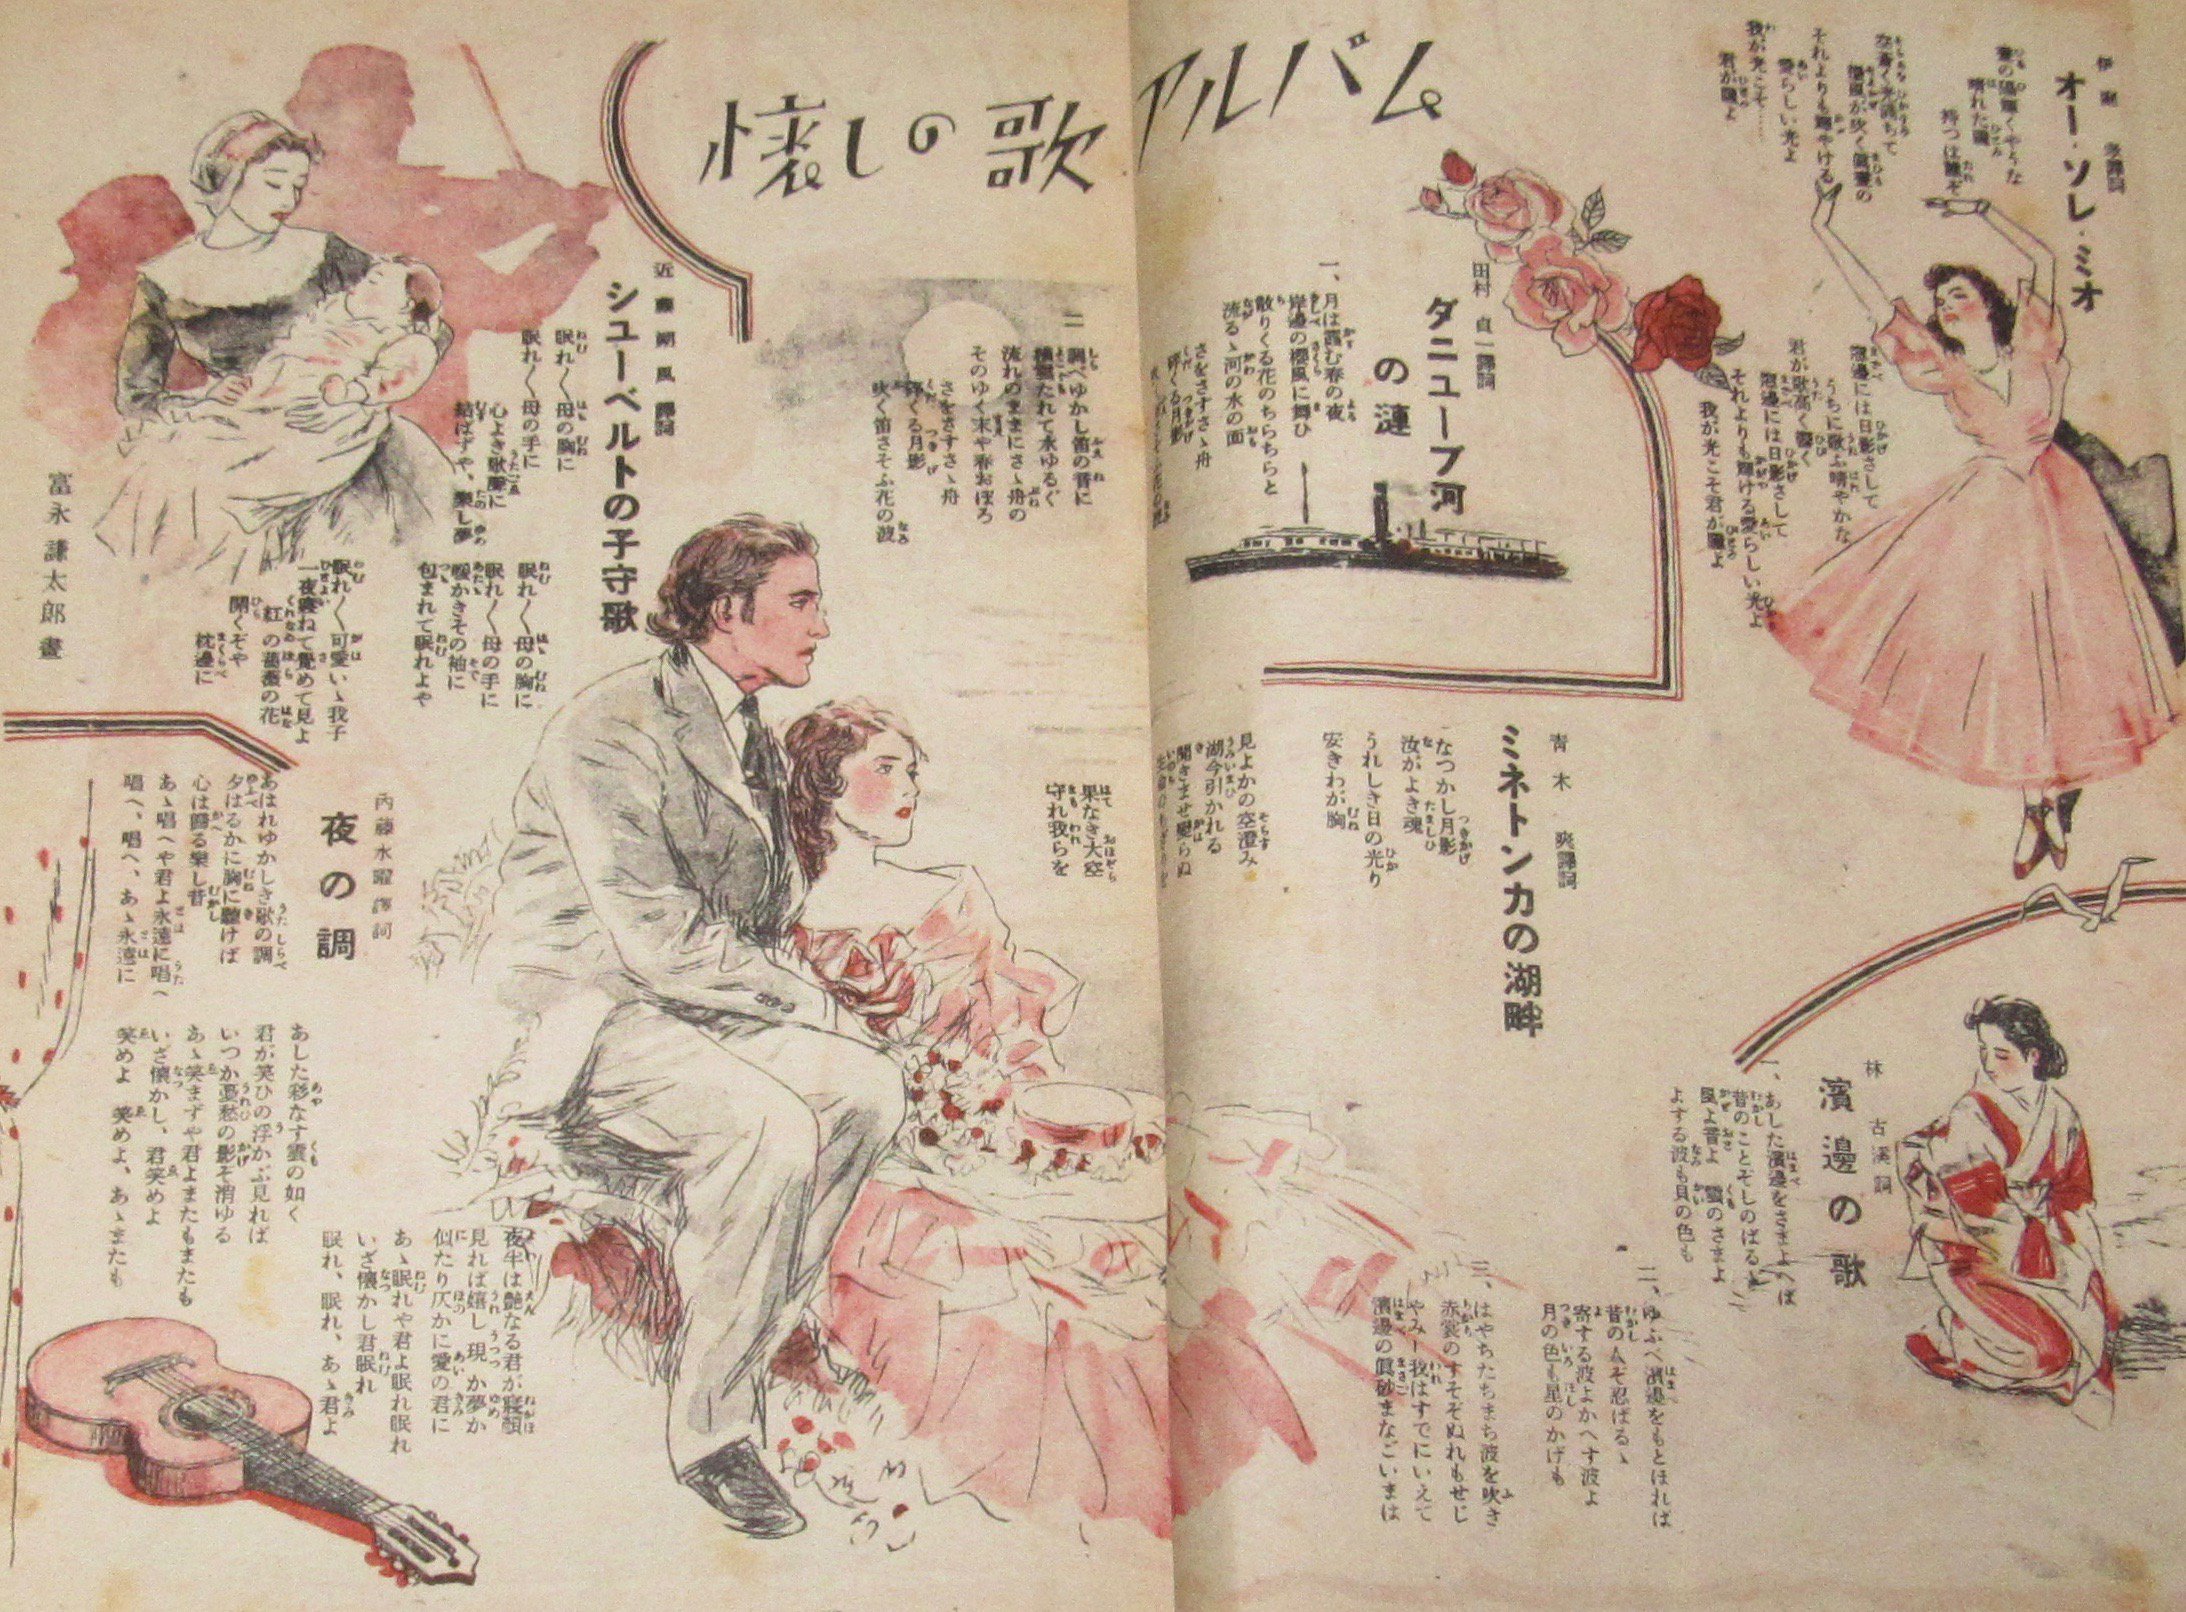 懐しの歌アルバム
オー・ソレ・ミオ
晴れた𫞂
空青く光満ちて
それよりも輝やける
愛らしい光よ
我が光こそ……
君が瞳よ
窓邊には日影さして
うちに歌ふ晴やかな
君が歌高く響く
窓邊には日影さして
それよりも輝ける愛らしい光よ
我が光こそ君が瞳よ
田村貞一譯詞
ダニューブ河の漣
一、月は霞む春の夜
岸邊の櫻風に舞ひ
散りくる花のちらちらと
流るゝ河の水の面
さをさすさゝ舟
砕くる月影
二、調べゆかし笛の音に
流れのままにさゝ舟の
そのゆく末や春おぼろ
さをさすさゝ舟
砕くる月影
吹く笛さそふ花の波
青木爽譯詞
ミネトンカの湖畔
なつかし月影
汝がよき魂
うれしき日の光り
安きわが胸
見よかの空澄み
湖今引かれる
聞きませ變らぬ
果なき大空
守れ我らを
林古溪詞
濱邊の歌
一、あした濱邊をさまよへば
昔のことぞしのばるゝ
風よ音よ 雲のさまよ
よする波も貝の色も
二、ゆふべ濱邊をもとほれば
昔の人ぞ忍ばるゝ
寄する波よかへす波よ
月の色も星のかげも
三、はやちたちまち波を吹き
赤裳のすそぞぬれもせじ
やみし我はすでにいえて
濱邊の眞砂まなごいまは
近藤朔風譯詞
シューベルトの子守歌
眠れ〳〵母の胸に
眠れ〳〵母の手に
心よき歌聲に
結ばずや、樂し夢
眠れ〳〵母の胸に
眠れ〳〵母の手に
暖かきその袖に
包まれて眠れよや
眠れ〳〵可愛いゝ我子
一夜寝ねて覺めて見よ
紅の薔薇の花
開くぞや
枕邊に
富永謙太郎畫
内藤水曜譯詞
夜の調
あはれゆかしき歌の調
夕はるかに胸に聽けば
心は歸る樂し昔
あゝ唱へや君よ永遠に唱へ
唱へ、唱へ、あゝ永遠に
あした彩なす雲の如く
君が笑ひの浮かぶ見れば
いつか憂愁の影ぞ消ゆる
あゝ笑まずや君よまたもまたも
いざ懐かし、君笑めよ
笑めよ 笑めよ、あゝまたも
夜半は艶なる君が寝顔
見れば嬉し 現か夢か
似たり仄かに愛の君に
あゝ眠れや君よ眠れ眠れ
いざ懐かし君眠れ
眠れ、眠れ、あゝ君よ